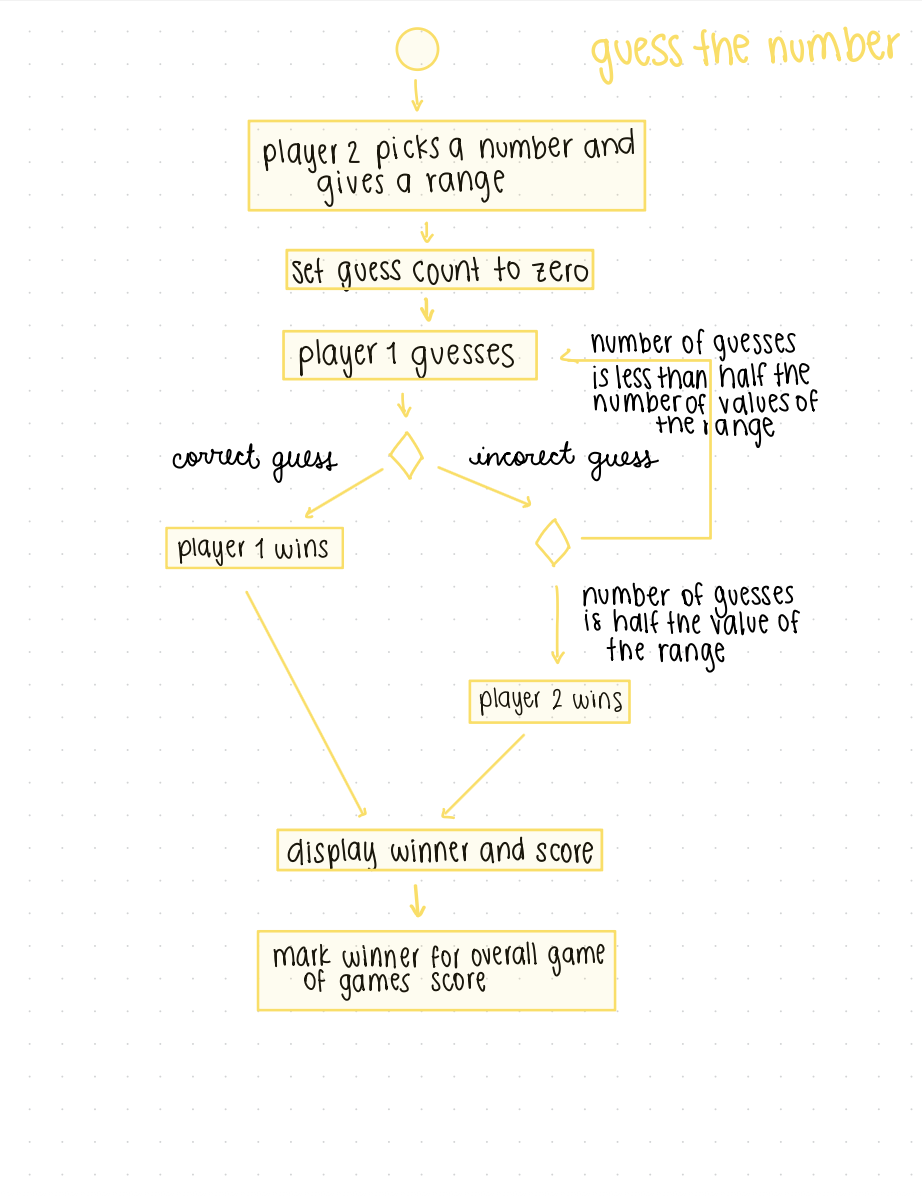 guess the number
player 2 picks a number and
gives a range
set guess count to zero
player 1 guesses
number of guesses
is less than half the
number of values of
the range
correct guess
incorect guess
player 1 wins
number of guesses
is half the value of
the range
player 2 wins
display winner and score
mark winner for overall game
of games score